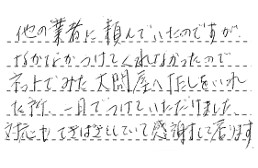 他の業者に頼んでいたのですが、
なかなかつけてくれなかったので
ネットでみた大問屋へTELをいれ
た所、一日でつけていただけました
対応もてきぱきとしていて感謝して居ります